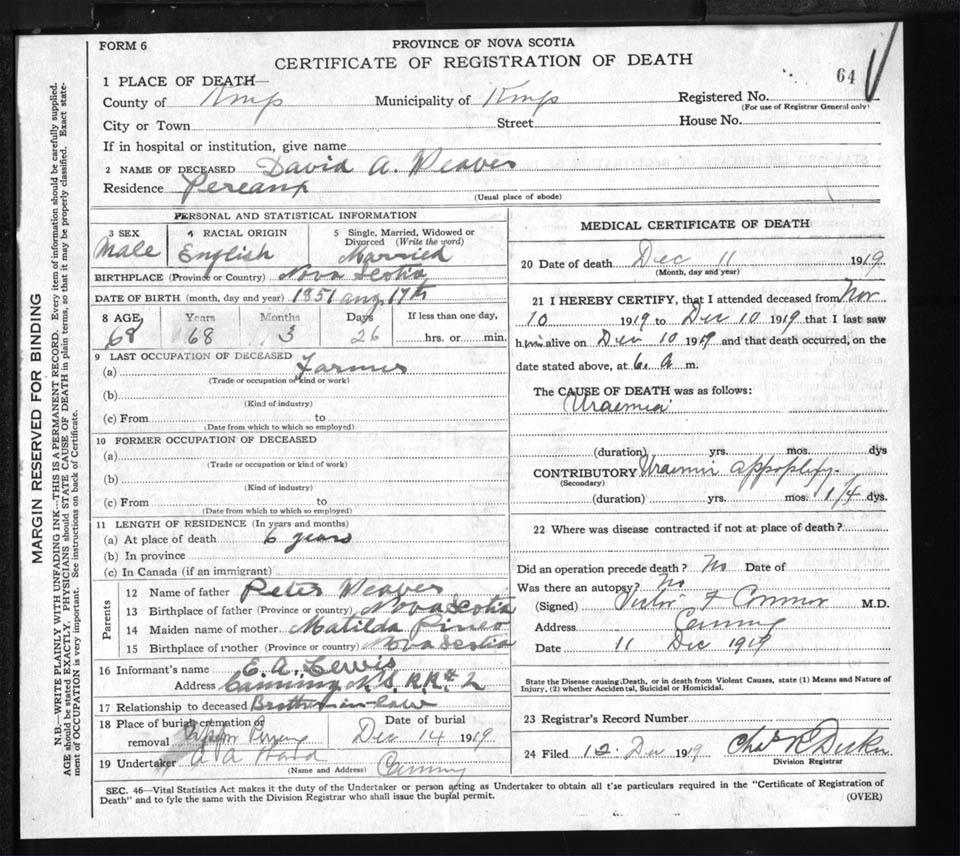 FORM 6
PROVINCE OF NOVA SCOTIA
CERTIFICATE OF REGISTRATION OF DEATH
64
1 PLACE OF DEATH—
County of Kings Municipality of Kings Registered No.
(For use of Registrar General only)
City or Town Street House No.
If in hospital or institution, give name
2 NAME OF DECEASED David A. Weaver
Residence Pereaux
(Usual place of abode)
PERSONAL AND STATISTICAL INFORMATION
3 SEX Male
4 RACIAL ORIGIN English
5 Single, Married, Widowed or Divorced (Write the word) Married
BIRTHPLACE (Province or Country) Nova Scotia
DATE OF BIRTH (month, day and year) 1851 aug 17th
8 AGE Years Months Days If less than one day,
68 68 3 26 hrs. or min.
9 LAST OCCUPATION OF DECEASED
(a) Farmer
(Trade or occupation or kind or work)
(b)
(Kind of industry)
(c) From to
(Date from which to which so employed)
10 FORMER OCCUPATION OF DECEASED
(a)
(Trade or occupation or kind of work)
(b)
(Kind of industry)
(c) From to
(Date from which to which so employed)
11 LENGTH OF RESIDENCE (In years and months)
(a) At place of death 6 years
(b) In province
(c) In Canada (if an immigrant)
Parents
12 Name of father Peter Weaver
13 Birthplace of father (Province or country) Nova Scotia
14 Maiden name of mother Matilda Pineo
15 Birthplace of mother (Province or country) Nova Scotia
16 Informant's name E. A. Lewis
Address Canning N.S. R.R# 2
17 Relationship to deceased Brother-in-law
18 Place of burial cremation or removal Date of burial
Dec 14 1919
19 Undertaker A A Ward Canning
(Name and Address)
MEDICAL CERTIFICATE OF DEATH
20 Date of death Dec 11 1919
(Month, day and year)
21 I HEREBY CERTIFY, that I attended deceased from Nov
10 1919 to Dec 10 1919 that I last saw
him alive on Dec 10 1919 and that death occurred, on the
date stated above, at 6. A m.
The CAUSE OF DEATH was as follows:
Uraemia
(duration) yrs. mos. dys
CONTRIBUTORY Uraemic appoplexy.
(Secondary)
(duration) yrs. mos. 1/4 dys.
22 Where was disease contracted if not at place of death?
Did an operation precede death? No Date of
Was there an autopsy? No
(Signed) Victor F Connor M.D.
Address Canning
Date 11 Dec 1919
State the Disease causing Death, or in death from Violent Causes, state (1) Means and Nature of
Injury, (2) whether Accidental, Suicidal or Homicidal.
23 Registrar's Record Number
24 Filed 12 Dec 1919
Division Registrar
SEC. 46—Vital Statistics Act makes it the duty of the Undertaker or person acting as Undertaker to obtain all the particulars required in the "Certificate of Registration of
Death" and to fyle the same with the Division Registrar who shall issue the burial permit.
(OVER)
MARGIN RESERVED FOR BINDING
N.B.—WRITE PLAINLY WITH UNFADING INK—THIS IS A PERMANENT RECORD. Every item of information should be carefully supplied.
AGE should be stated EXACTLY. PHYSICIANS should STATE CAUSE OF DEATH in plain terms, so that it may be properly classified. Exact state-
ment of OCCUPATION is very important. See instructions on back of Certificate.